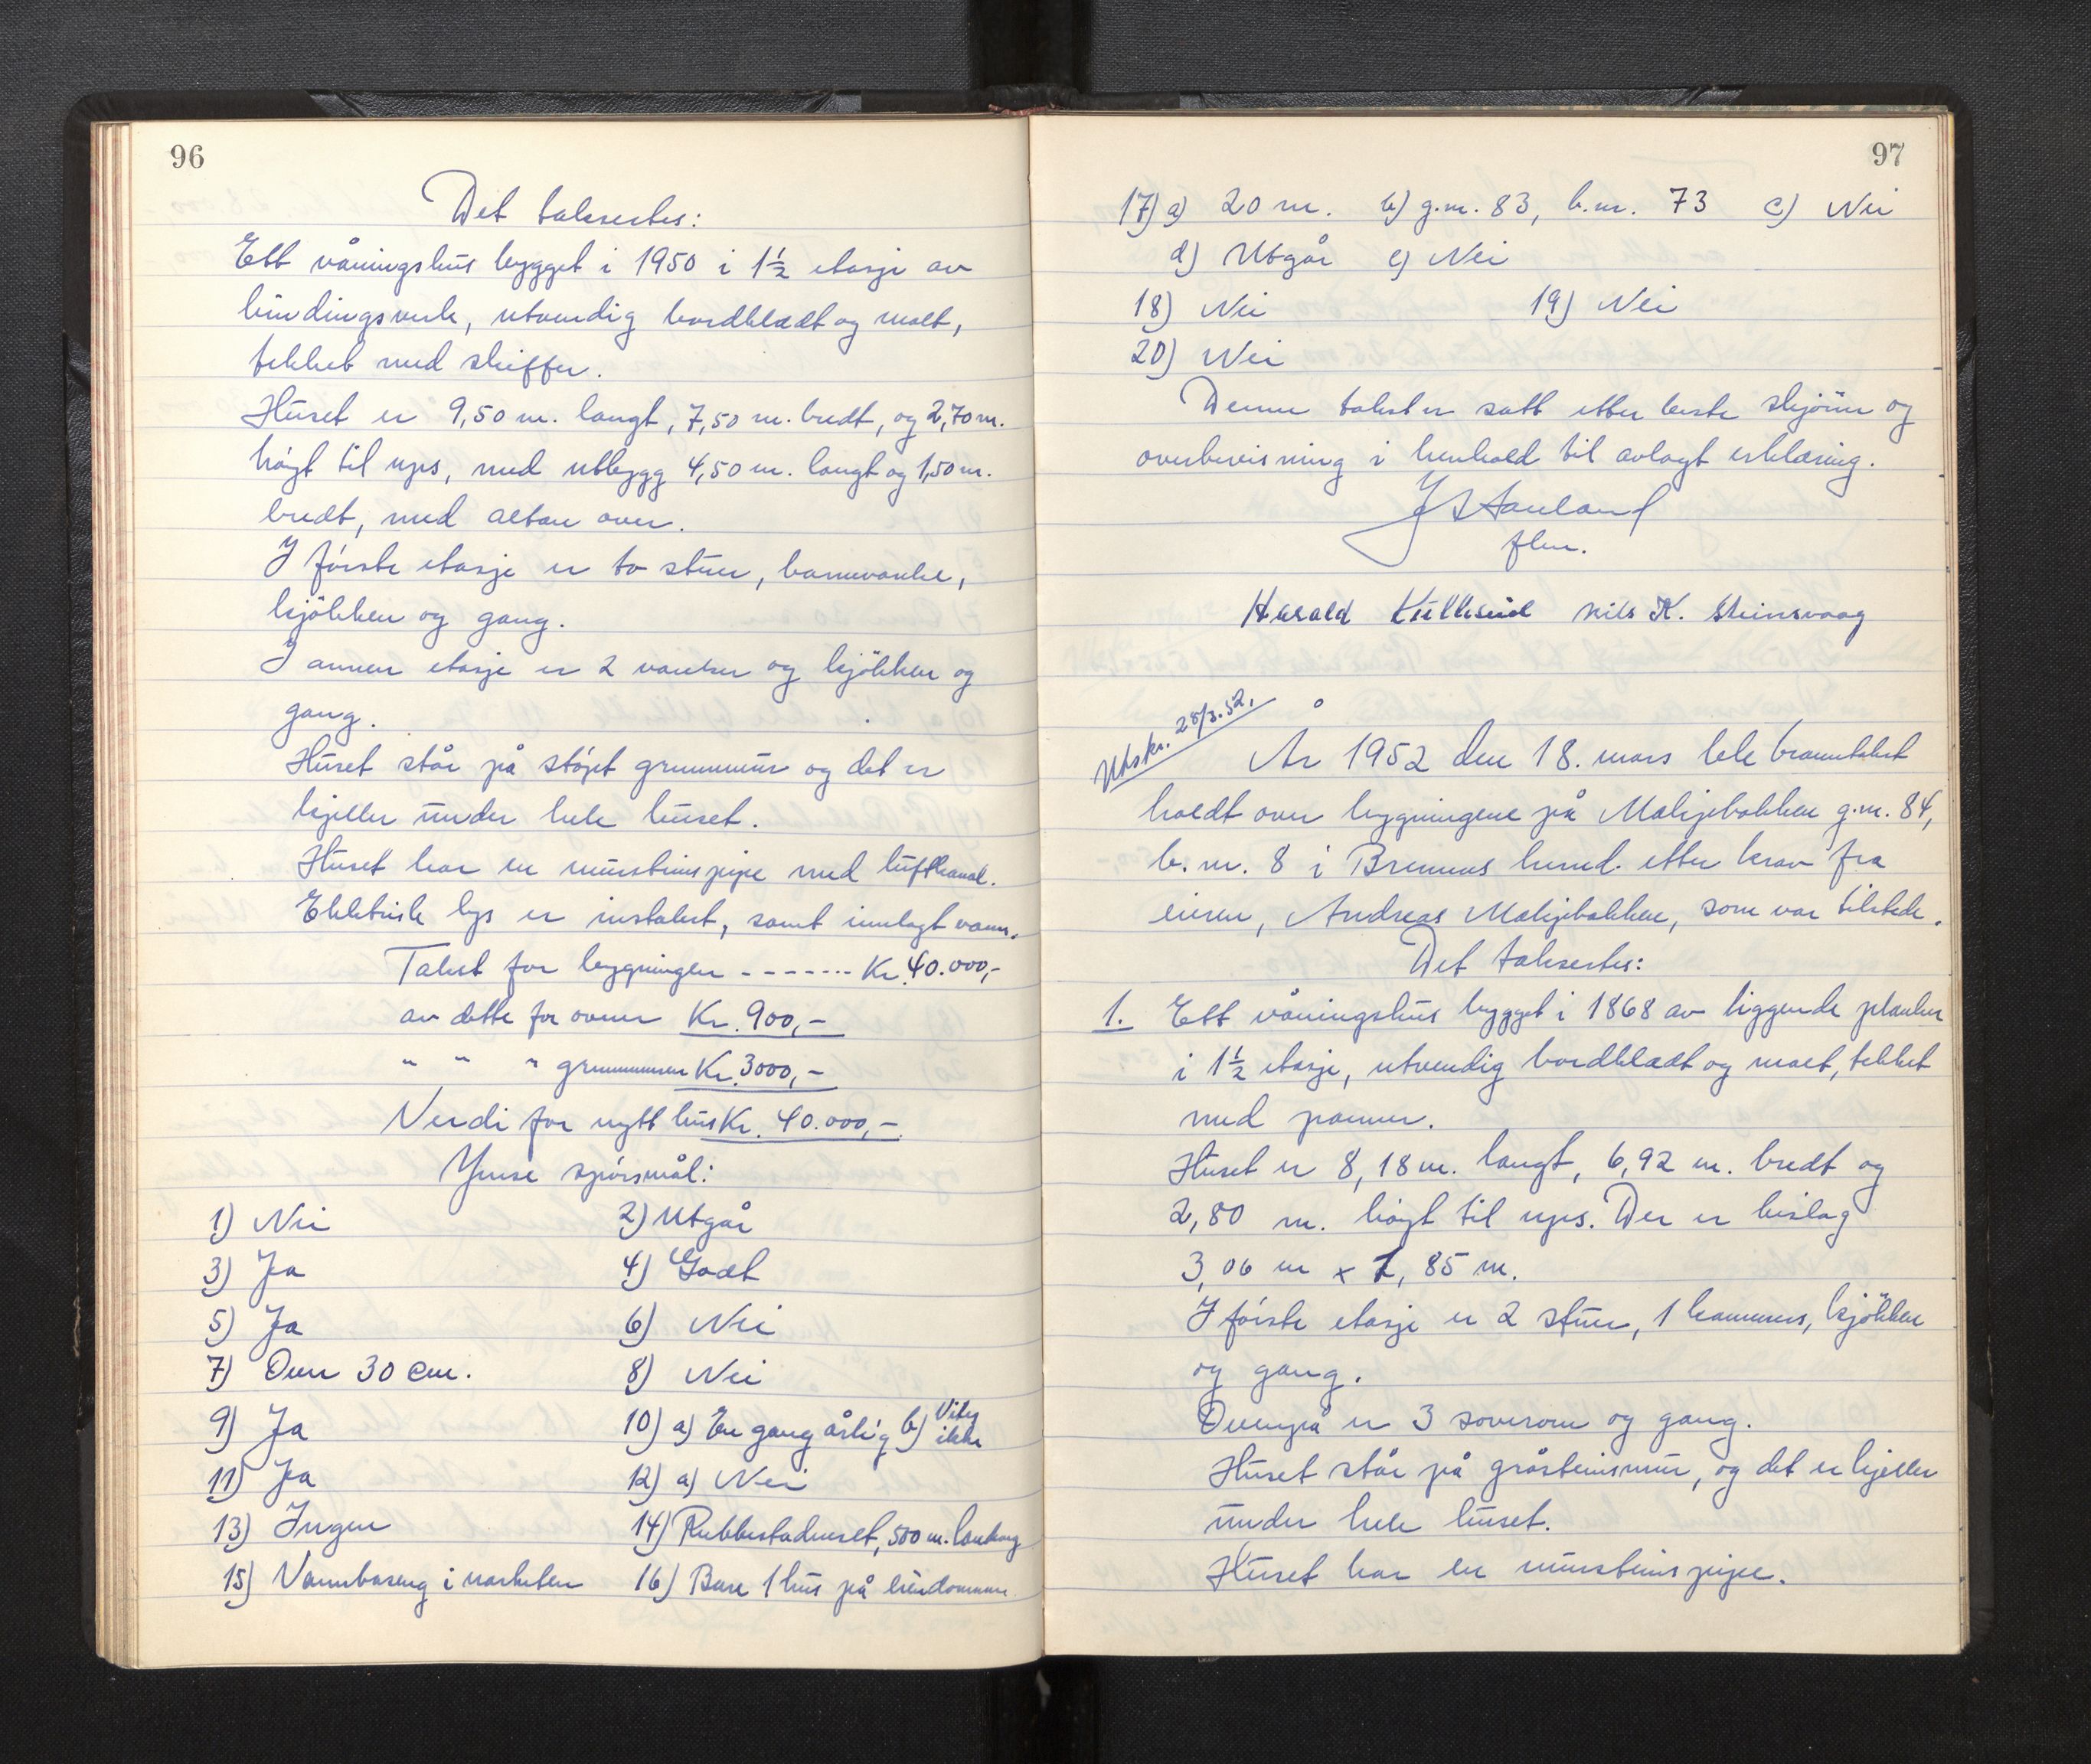 96
Det taksertes:
Ett våningshus bygget i 1950 i 1½ etasje av
bindingsverk, utvendig bordklædt og malt,
tekket med skiffer.
Huset er 9,50 m. langt, 7,50 m. bredt, og 2,70 m.
høyt til ups, med utbygg 4,50 m. langt og 1,50 m.
bredt, med altan over.
I første etasje er to stuer, barnevarelse,
kjøkken og gang.
I annen etasje er 2 varelser og kjøkken og
gang.
Huset står på støpt grunnmur og det er
kjeller under hele huset.
Huset har en murstenspipe med luftkanal.
Elektrisk lys er instalert, samt innlagt vann.
Takst for bygningen ------- Kr. 40.000,-
av dette for ovner Kr. 900,-
" " " grunnmuren Kr. 3000,-
Verdi for nytt hus Kr. 40.000,-
Ymse spørsmål:
1) Nei 2) Utgår
3) Ja 4) Godt
5) Ja 6) Nei
7) Over 30 cm. 8) Nei
9) Ja 10) a) En gang årlig b) Vites ikke
11) Ja 12) a) Nei
13) Ingen 14) Rubbestadneset, 500 m. landveg
15) Vannbaseng i nærheten 16) Bare 1 hus på eiendommen
97
17) a) 20 m. b) g.nr. 83, b.nr. 73 c) Nei
d) Utgår e) Nei
18) Nei 19) Nei
20) Nei
Denne takst er satt etter beste skjønn og
overbevisning i henhold til avlagt erklæring.
flm.
Harald Nils K. Steinsvaag
Utskr. 28/3.52.
År 1952 den 18. mars ble branntakst
holdt over bygningene på Mælkjebakken g.nr. 84,
b.nr. 8 i Bremnes herred etter krav fra
eieren, Andreas Mælkjebakken, som var tilstede.
Det taksertes:
1. Ett våningshus bygget i 1868 av liggende planker
i 1½ etasje, utvendig bordklædt og malt, tekket
med panner.
Huset er 8,18 m. langt, 6,92 m. bredt og
2,80 m. høyt til ups. Der er bislag
3,06 m x 1,85 m.
I første etasje er 2 stuer, 1 kammers, kjøkken
og gang.
Ovenpå er 3 soverom og gang.
Huset står på gråsteinsmur, og det er kjeller
under hele huset.
Huset har en murstenspipe.